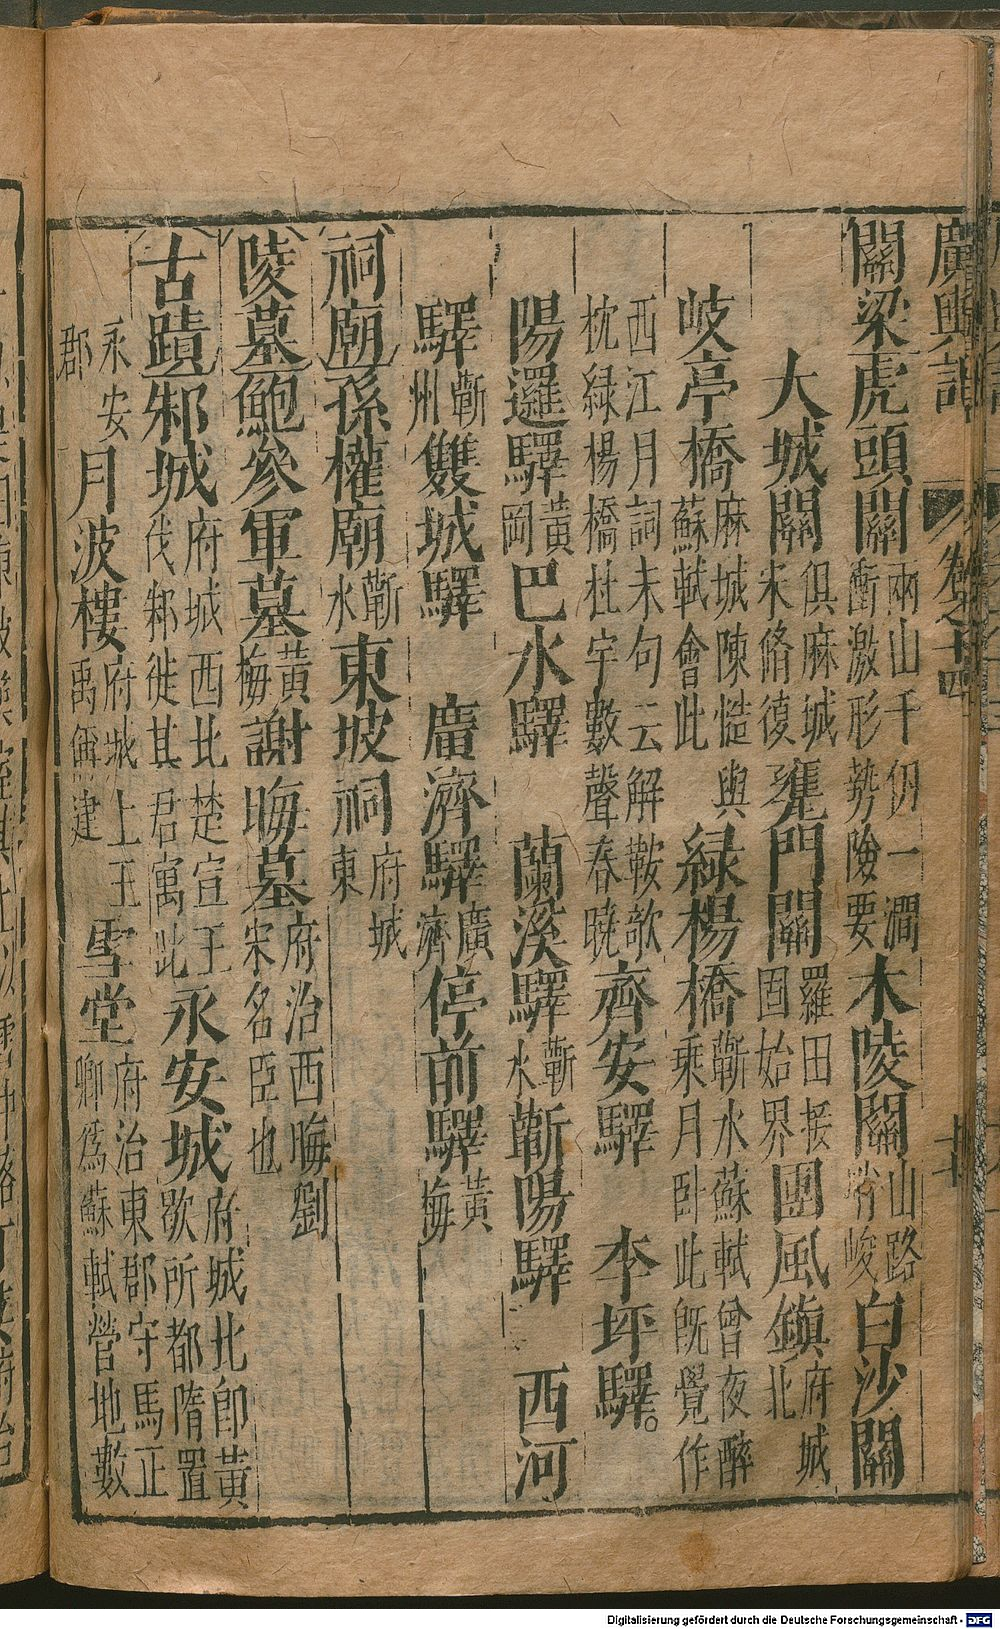 廣輿記 卷之十四 十七
關梁虎頭關兩山千仞一澗衝激形勢險要木陵關山路峻白沙關
大城關俱麻城宋脩復甕門關羅田接固始界團風鎮府城北
岐亭橋麻城陳慥與蘇軾會此綠楊橋蘄水蘇軾曾夜醉乘月臥此旣覺作
西江月詞末句云解鞍欹枕綠楊橋杜宇數聲春曉齊安驛 李坪驛。
陽邏驛黃岡巴水驛 蘭溪驛蘄水蘄陽驛 西河
驛蘄州雙城驛 廣濟驛廣濟停前驛黃梅
祠廟孫權廟蘄水東坡祠府城東
陵墓鮑參軍墓黃梅謝晦墓府治西晦劉宋名臣也
古蹟邾城府城西北楚宣王伐邾徙其君寓此永安城府城北卽黃歇所都隋置
永安郡月波樓府城上王禹偁建雪堂府治東郡守馬正卿爲蘇軾營地數
Digitalisierung gefördert durch die Deutsche Forschungsgemeinschaft - DFG